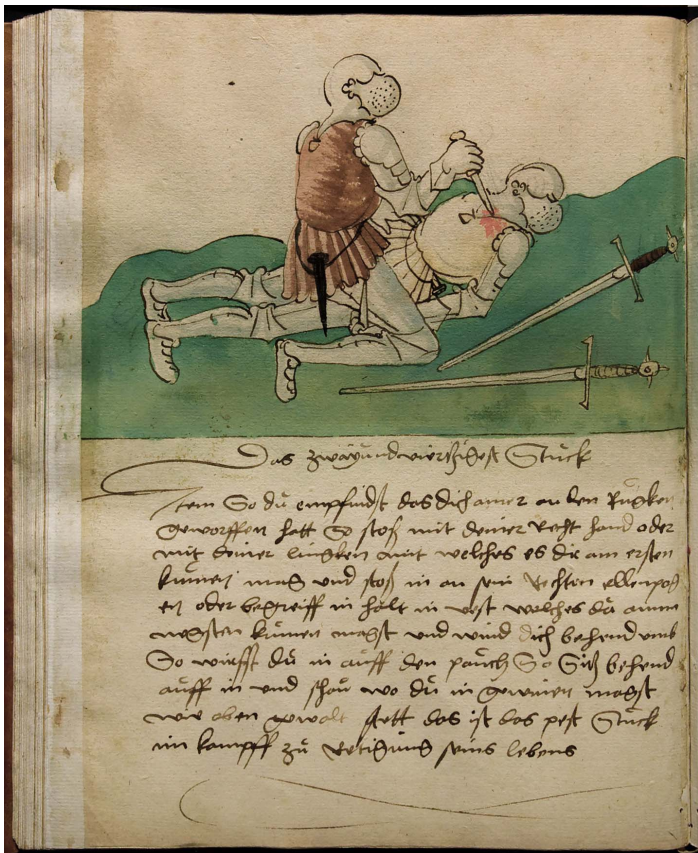 Das zwaÿundviertzigest Stuck
Item So dü empfindst das dich ainer an den Rugken
geworffen hatt So stoß mit deiner Recht hand oder
mit deiner lingken mit welches es dir am ersten
kumen mag und stoß in an sein Rechten ellenpog
en oder begreiff in halt in vest welches dü am
negsten kumen magst und wind dich behend umb
So wirfst dü in aüff den paüch So Sitz behend
aüff in und schaü wo dü in gewinen magst
wie oben gewalt stett das ist das pest Stuck
im kampff zü seins lebens